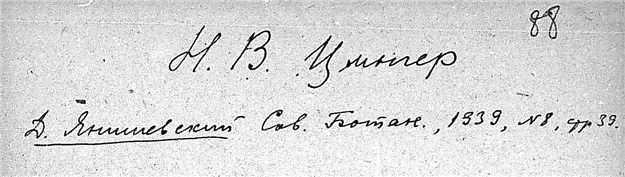 88
Н. В. Цингер
Д. Янишевский Сов. Ботан., 1939, N8, стр 39.